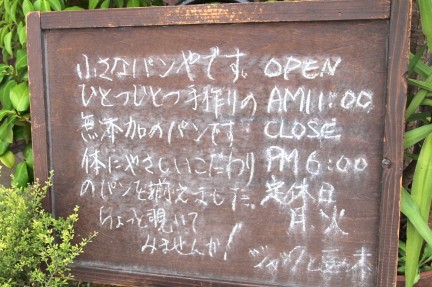 小さなパンやです。 OPEN
ひとつひとつ手作りの AM11:00
無添加のパンです CLOSE
体にやさしいこだわり PM6:00
のパンを揃えました。 定休日
ちょっと覗いて 月、火
みませんか!
ジャックと豆の木